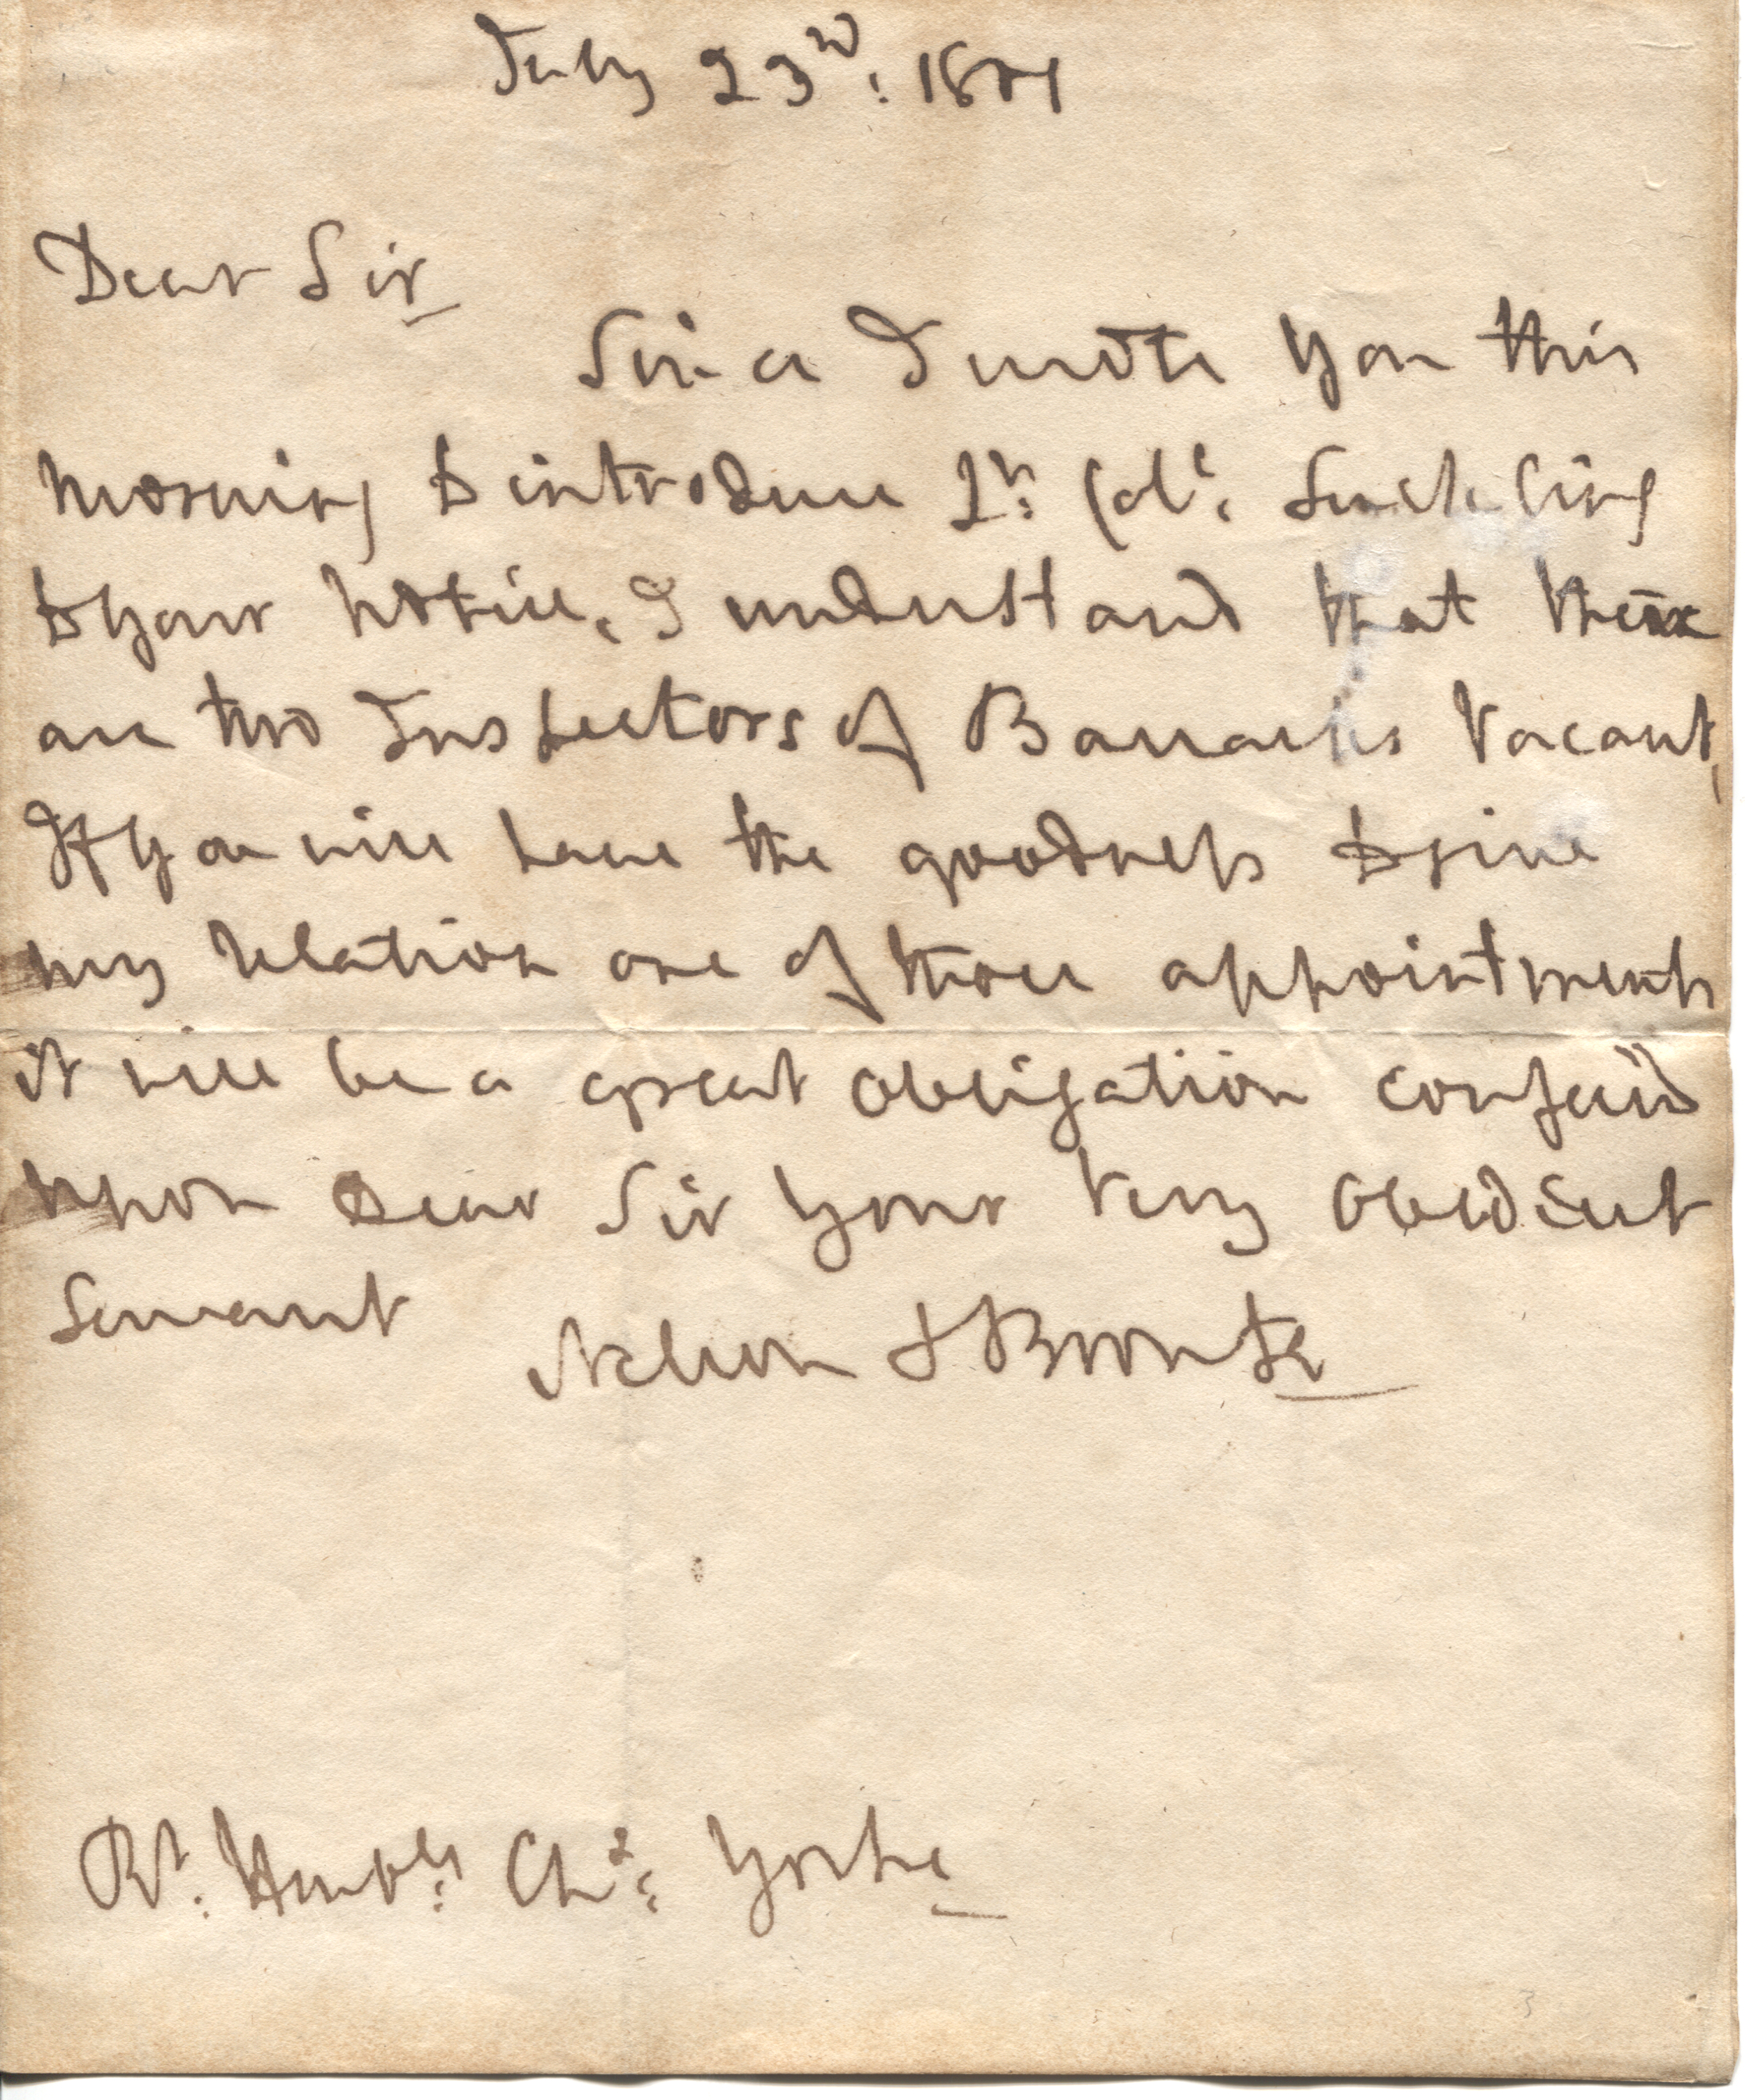 July 23d: 1801
Dear Sir
Since I wrote you this
morning to introduce Lt: Col: Suckling
to your notice, I understand that there
are two Inspectors of Barracks vacant,
If you will have the goodness to give
my relation one of those appointments
it will be a great obligation conferr'd
upon Dear Sir your very obedient
Servant Nelson & Bronte
Rt: Honble: Chs: Yorke
3